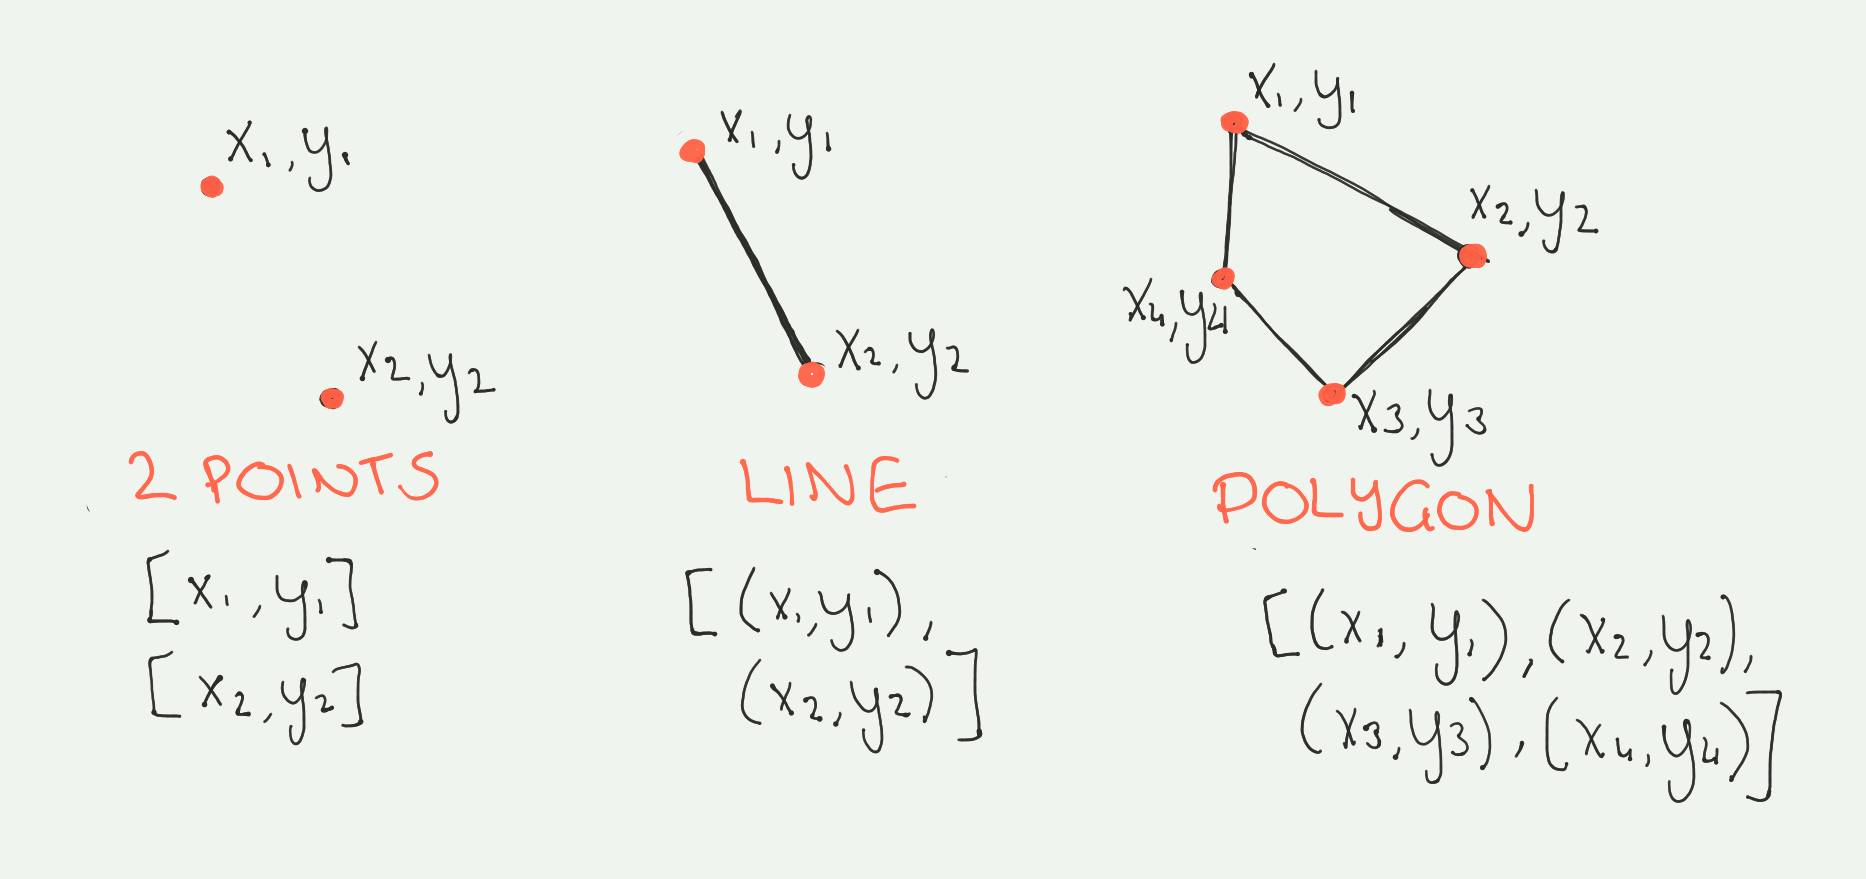 x₁, y₁
x₂, y₂
2 POINTS
[x₁, y₁]
[x₂, y₂]
x₁, y₁
x₂, y₂
LINE
[(x₁, y₁),
(x₂, y₂)]
x₁, y₁
x₂, y₂
x₄, y₄
x₃, y₃
POLYGON
[(x₁, y₁), (x₂, y₂),
(x₃, y₃), (x₄, y₄)]